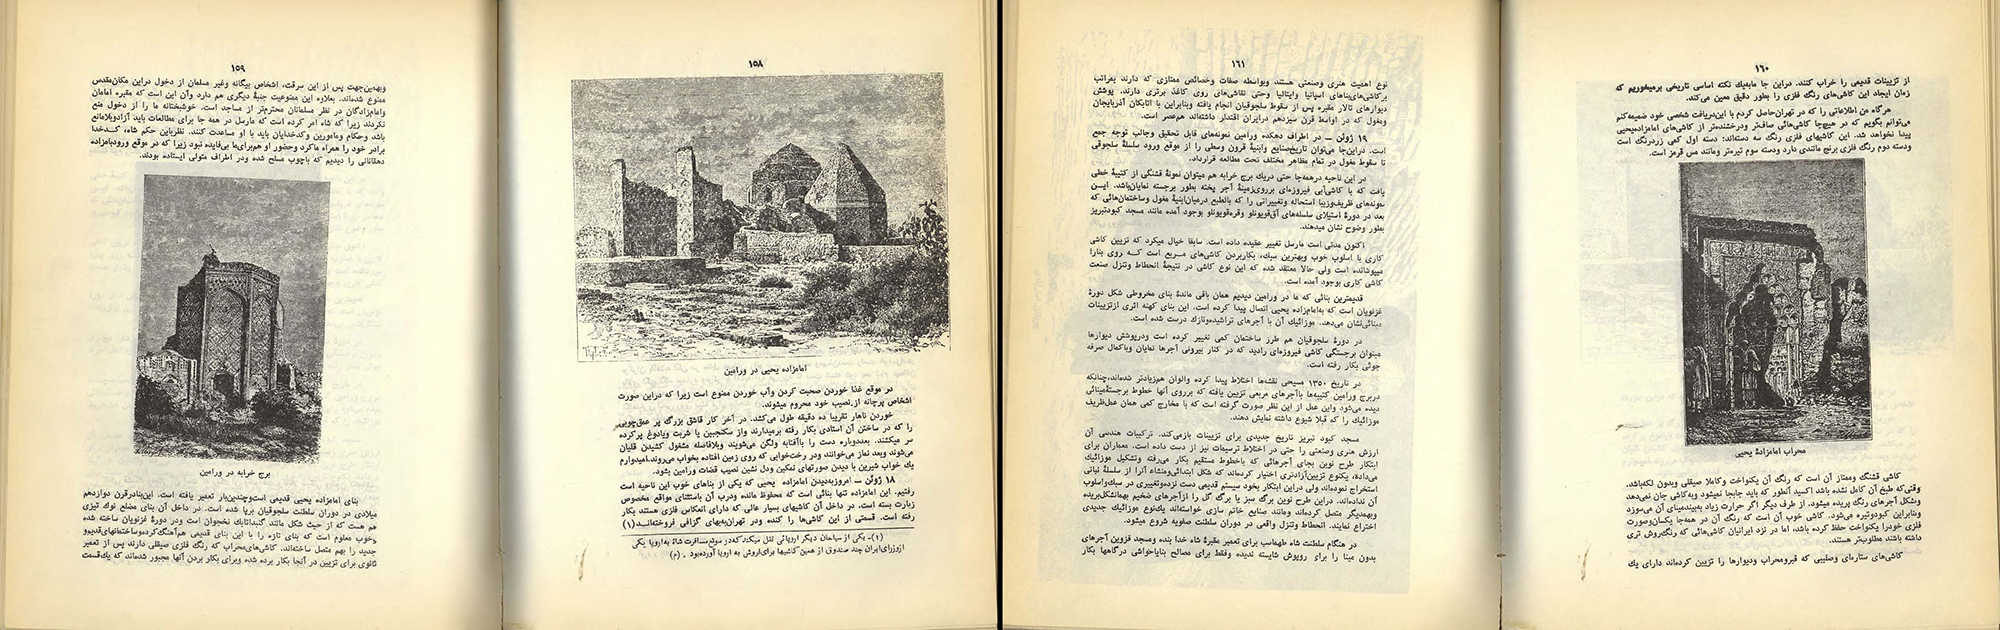 ۱۵۸
امامزاده یحیی در ورامین
در موقع غذا خوردن صحبت کردن وآب خوردن ممنوع است زیرا که دراین صورت
اشخاص پرچانه از نصیب خود محروم میشوند.
خوردن ناهار تقریبا ده دقیقه طول می‌کشد. در آخر کار قاشق بزرگ پر عمق‌چوبی
را که در ساختن آن استادی بکار رفته برمیدارند واز سکنجبین یا شربت ویادوغ پرکرده
سر میکشند. بعددوباره دست را باآفتابه ولگن می‌شویند وبلافاصله مشغول کشیدن قلیان
می‌شوند وبعد نماز می‌خوانند ودر رخت‌خوابی که روی زمین افتاده بخواب می‌روند.امیدوارم
یك خواب شیرین با دیدن صورتهای نمکین ودل نشین نصیب قضات ورامین بشود.
۱۸ ژوئن – امروزبدیدن امامزاده یحیی که یکی از بناهای خوب این ناحیه است
رفتیم. این امامزاده تنها بنائی است که محفوظ مانده ودرب آن باستثنای مواقع مخصوص
زیارت بسته است. در داخل آن کاشیهای بسیار عالی که دارای انعکاس فلزی هستند بکار
رفته است. قسمتی از این کاشی‌ها را کنده ودر تهران‌ببهای گزافی فروخته‌اند (۱)
(۱)- یکی از سیاحان دیگر اروپائی نقل میکند که در موقع مسافرت شاه به اروپا یکی
ازوزرای‌ایران چند صندوق از همین کاشیها برای‌فروش به اروپا آورده‌بود . (م)
۱۵۹
وبهمین‌جهت پس از این سرقت، اشخاص بیگانه وغیر مسلمان از دخول دراین مکان‌مقدس
ممنوع شده‌اند. بعلاوه این ممنوعیت جنبهٔ دیگری هم دارد وآن این است که مقبره امامان
وامام‌زادگان در نظر مسلمانان محترم‌تر از مساجد است. خوشبختانه ما را از دخول منع
نکردند زیرا که شاه امر کرده است که مارسل در همه جا برای مطالعات باید آزادوبلامانع
باشد وحکام ومامورین وکدخدایان باید با او مساعدت کنند. نظرباین حکم شاه، کدخدا
برادر خود را همراه ماکرد وحضور او هم‌برای‌ما بی‌فایده نبود زیرا که در موقع ورودبامزاده
دهقانانی را دیدیم که باچوب مسلح شده ودر اطراف متولی ایستاده بودند.
برج خرابه در ورامین
بنای امامزاده یحیی قدیمی است‌وچندین‌بار تعمیر یافته است. این‌بنادرقرن دوازدهم
میلادی در دوران سلطنت سلجوقیان برپا شده است. در داخل آن بنای مضلع نوک تیزی
هم هست که از حیث شکل مانند گنبداتابک نخجوان است ودر دورهٔ غزنویان ساخته شده
وخوب معلوم است که بنای تازه را با این بنای قدیمی هم‌آهنگ‌کرده‌وساختمانهای‌قدیم‌و
جدید را بهم متصل ساخته‌اند. کاشی‌های‌محراب که رنگ فلزی صیقلی دارند پس از تعمیر
ثانوی برای تزیین در آنجا بکار برده شده وبرای بکار بردن آنها مجبور شده‌اند که یك‌قسمت
۱۶۰
از تزیینات قدیمی را خراب کنند. دراین جا مابه‌یك نکته اساسی تاریخی برمیخوریم که
زمان ایجاد این کاشی‌های رنگ فلزی را بطور دقیق معین می‌کند.
هرگاه من اطلاعاتی را که در تهران‌حاصل کردم با این‌دریافت شخصی خود ضمیمه‌کنم
می‌توانم بگویم که در هیچ‌جا کاشی‌هائی صاف‌تر ودرخشنده‌تر از کاشی‌های امامزاده‌یحیی
پیدا نخواهد شد. این کاشیهای فلزی رنگ سه دسته‌اند: دسته اول کمی زردرنگ است
ودسته دوم رنگ فلزی برنج مانندی دارد ودسته سوم تیره‌تر ومانند مس قرمز است.
محراب امامزادهٔ یحیی
کاشی قشنگ وممتاز آن است که رنگ آن یکنواخت وکاملا صیقلی وبدون لکه‌باشد.
وقتی‌که طبخ آن کامل نشده باشد اکسید آنطور که باید جابجا نمیشود وبه‌کاشی جان نمی‌دهد
وشکل آجرهای رنگ پریده میشود. از طرف دیگر اگر حرارت زیاد به‌بیندمینای آن می‌سوزد
وبنابراین کبودوتیره می‌شود. کاشی خوب آن است که رنگ آن در همه‌جا یکسان‌وصورت
فلزی خودرا یکنواخت حفظ کرده باشد، اما در نزد ایرانیان کاشی‌هائی که رنگ‌روش تری
داشته باشند مطلوب‌تر هستند.
کاشی‌های ستاره‌ای وصلیبی که قبرومحراب ودیوارها را تزیین کرده‌اند دارای یك
۱۶۱
نوع اهمیت هنری وصنعتی هستند وبواسطه صفات وخصائص ممتازی که دارند بمراتب
برکاشی‌های‌بناهای اسپانیا وایتالیا وحتی نقاشی‌های روی کاغذ برتری دارند. پوشش
دیوارهای تالار مقبره پس از سقوط سلجوقیان انجام یافته وبنابراین با اتابکان آذربایجان
ومغول که در اواسط قرن سیزدهم درایران اقتدار داشته‌اند هم‌عصر است.
۱۹ ژوئن – در اطراف دهکده ورامین نمونه‌های قابل تحقیق وجالب توجه جمع
است. دراین‌جا می‌توان تاریخ‌صنایع وابنیهٔ قرون وسطی را از موقع ورود سلسلهٔ سلجوقی
تا سقوط مغول در تمام مظاهر مختلف تحت مطالعه قرارداد.
در این ناحیه درهمه‌جا حتی دریك برج خرابه هم میتوان نمونهٔ قشنگی از کتیبهٔ خطی
یافت که با کاشی‌آبی فیروزه‌ای برروی‌زمینهٔ آجر پخته بطور برجسته نمایان‌باشد. ایــن
نمونه‌های ظریف‌وزیبا استحاله وتغییراتی را که بالطبع درمیان‌ابنیهٔ مغول وساختمان‌هائی که
بعد در دورهٔ استیلای سلسله‌های آق‌قویونلو وقره‌قویونلو بوجود آمده مانند مسجد کبودتبریز
بطور وضوح نشان میدهند.
اکنون مدتی است مارسل تغییر عقیده داده است. سابقا خیال میکرد که تزیین کاشی
کاری با اسلوب خوب وبهترین سبك، بکاربردن کاشی‌های مــربع است کــه روی بنارا
میپوشانده است ولی حالا معتقد شده که این نوع کاشی در نتیجهٔ انحطاط وتنزل صنعت
کاشی کاری بوجود آمده است.
قدیمترین بنائی که ما در ورامین دیدیم همان باقی ماندهٔ بنای مخروطی شکل دورهٔ
غزنویان است که به‌امامزاده یحیی اتصال پیدا کرده است. این بنای کهنه اثری ازتزیینات
مینائی‌نشان می‌دهد. موزائیك آن با آجرهای تراشیده‌ونازك درست شده است.
در دورهٔ سلجوقیان هم طرز ساختمان کمی تغییر کرده است ودرپوشش دیوارها
میتوان برجستگی کاشی فیروزه‌ای رادید که در کنار بیرونی آجرها نمایان وباکمال صرفه
جوئی بکار رفته است.
در تاریخ ۱۳۵۰ مسیحی نقشه‌ها اختلاط پیدا کرده والوان هم‌زیادتر شده‌اند،چنانکه
دربرج ورامین کتیبه‌ها باآجرهای مربعی تزیین یافته که برروی آنها خطوط برجستهٔ‌مینائی
دیده می‌شود واین عمل از این نظر صورت گرفته است که با مخارج کمی همان عمل‌ظریف
موزائیك را که قبلا شیوع داشته نمایش دهند.
مسجد کبود تبریز تاریخ جدیدی برای تزیینات بازمی‌کند. ترکیبات هندسی آن
ارزش هنری وصنعتی را حتی در اختلاط ترسیمات نیز از دست داده است. معماران برای
ابتکار طرح نوین بجای آجرهائی که باخطوط مستقیم بکار می‌رفته وتشکیل موزائیك
می‌داده، یکنوع تزیین‌آزادتری اختیار کرده‌اند که شکل ابتدائی‌ومنشاء آنرا از سلسلهٔ نباتی
استخراج نموده‌اند ولی دراین ابتکار بخود سیستم قدیمی دست نزده‌وتغییری در سبك‌واسلوب
آن نداده‌اند. دراین طرح نوین برگ سبز یا برگ گل را ازآجرهای ضخیم بهمان‌شکل‌بریده
وبهمدیگر متصل کرده‌اند ومانند صنایع خاتم سازی خواسته‌اند یك‌نوع موزائیك جدیدی
اختراع نمایند. انحطاط وتنزل واقعی در دوران سلطنت صفویه شروع میشود.
در هنگام سلطنت شاه طهماسب برای تعمیر مقبرهٔ شاه خدا بنده ومسجد قزوین آجرهای
بدون مینا را برای روپوش شایسته ندیده وفقط برای مصالح بنایاحواشی درگاهها بکار